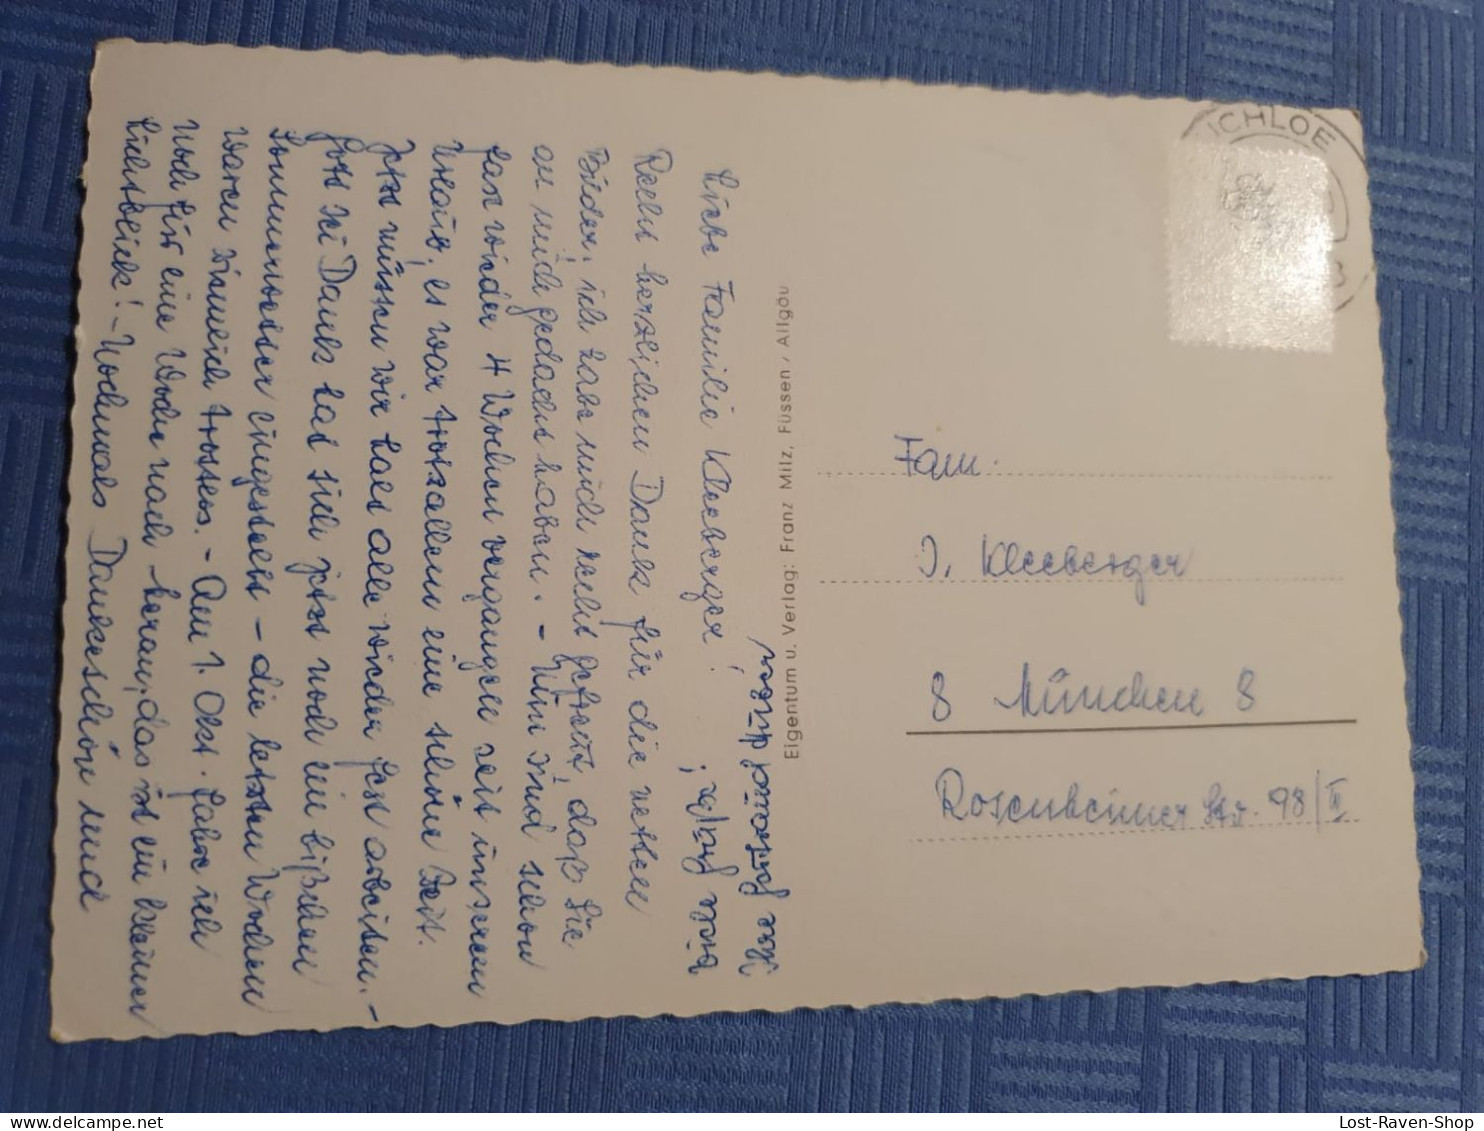 Liebe Familie Kleeberger!
Recht herzlichen Dank für die netten
Bilder, ich habe mich recht gefreut, daß Sie
an mich gedacht haben. - Nun sind schon
fast wieder 4 Wochen vergangen seit unserem
Urlaub, es war trotz allem eine schöne Zeit.
Jetzt müssen wir halt alle wieder fest arbeiten. -
Gott sei Dank hat sich jetzt noch ein bißchen
Sommerwetter eingestellt - die letzten Wochen
waren ziemlich trostlos. - Am 1. Okt. fahre ich
noch für eine Woche nach Meran, das ist ein kleiner
Lichtblick! - Nochmals Dankeschön und
viele Grüße,
Ihre Gertraud
Eigentum u. Verlag: Franz Milz, Füssen / Allgäu
ICHLOE
Fam.
J. Kleeberger
8 München 8
Rosenheimer Str. 98/II
Lost-Raven-Shop